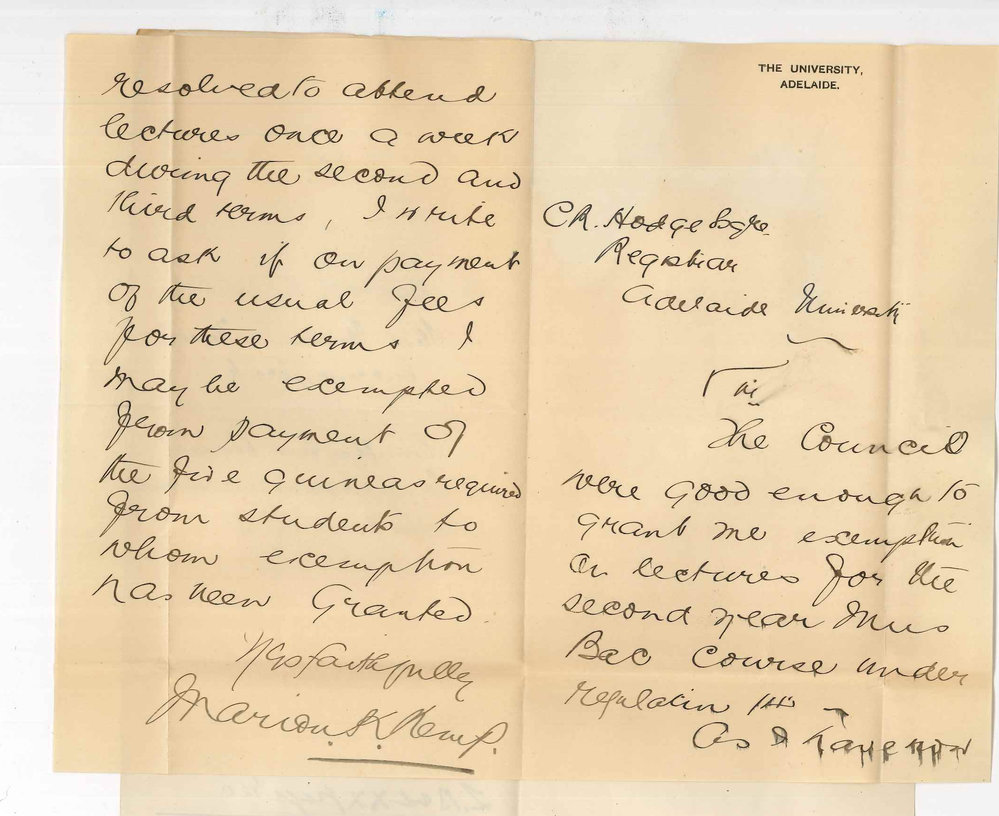 THE UNIVERSITY,
ADELAIDE.
C R. Hodge Esqre
Registrar
Adelaide University
Sir
The Council
were good enough to
grant me exemption
on lectures for the
second year Mus
Bac course under
regulation
As I have now
resolved to attend
lectures once a week
during the second and
third terms, I write
to ask if on payment
of the usual fees
for these terms I
may be exempted
from payment of
the five guineas required
from students to
whom exemption
has been granted.
Yrs faithfully
Marion. K. Hemp.